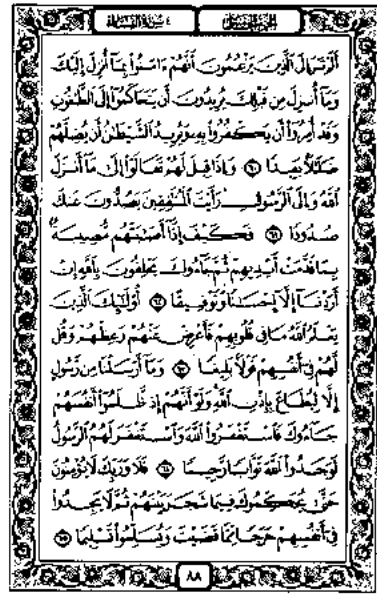 الجزء الخامس ٤ سورة النساء
أَلَمْ تَرَ إِلَى ٱلَّذِينَ يَزْعُمُونَ أَنَّهُمْ ءَامَنُوا۟ بِمَآ أُنزِلَ إِلَيْكَ
وَمَآ أُنزِلَ مِن قَبْلِكَ يُرِيدُونَ أَن يَتَحَاكَمُوٓا۟ إِلَى ٱلطَّٰغُوتِ
وَقَدْ أُمِرُوٓا۟ أَن يَكْفُرُوا۟ بِهِۦ وَيُرِيدُ ٱلشَّيْطَٰنُ أَن يُضِلَّهُمْ
ضَلَٰلًۢا بَعِيدًا ٦٠ وَإِذَا قِيلَ لَهُمْ تَعَالَوْا۟ إِلَىٰ مَآ أَنزَلَ
ٱللَّهُ وَإِلَى ٱلرَّسُولِ رَأَيْتَ ٱلْمُنَٰفِقِينَ يَصُدُّونَ عَنكَ
صُدُودًا ٦١ فَكَيْفَ إِذَآ أَصَٰبَتْهُم مُّصِيبَةٌۢ
بِمَا قَدَّمَتْ أَيْدِيهِمْ ثُمَّ جَآءُوكَ يَحْلِفُونَ بِٱللَّهِ إِنْ
أَرَدْنَآ إِلَّآ إِحْسَٰنًا وَتَوْفِيقًا ٦٢ أُو۟لَٰٓئِكَ ٱلَّذِينَ
يَعْلَمُ ٱللَّهُ مَا فِى قُلُوبِهِمْ فَأَعْرِضْ عَنْهُمْ وَعِظْهُمْ وَقُل
لَّهُمْ فِىٓ أَنفُسِهِمْ قَوْلًۢا بَلِيغًا ٦٣ وَمَآ أَرْسَلْنَا مِن رَّسُولٍ
إِلَّا لِيُطَاعَ بِإِذْنِ ٱللَّهِ وَلَوْ أَنَّهُمْ إِذ ظَّلَمُوٓا۟ أَنفُسَهُمْ
جَآءُوكَ فَٱسْتَغْفَرُوا۟ ٱللَّهَ وَٱسْتَغْفَرَ لَهُمُ ٱلرَّسُولُ
لَوَجَدُوا۟ ٱللَّهَ تَوَّابًا رَّحِيمًا ٦٤ فَلَا وَرَبِّكَ لَا يُؤْمِنُونَ
حَتَّىٰ يُحَكِّمُوكَ فِيمَا شَجَرَ بَيْنَهُمْ ثُمَّ لَا يَجِدُوا۟
فِىٓ أَنفُسِهِمْ حَرَجًا مِّمَّا قَضَيْتَ وَيُسَلِّمُوا۟ تَسْلِيمًا ٦٥
٨٨